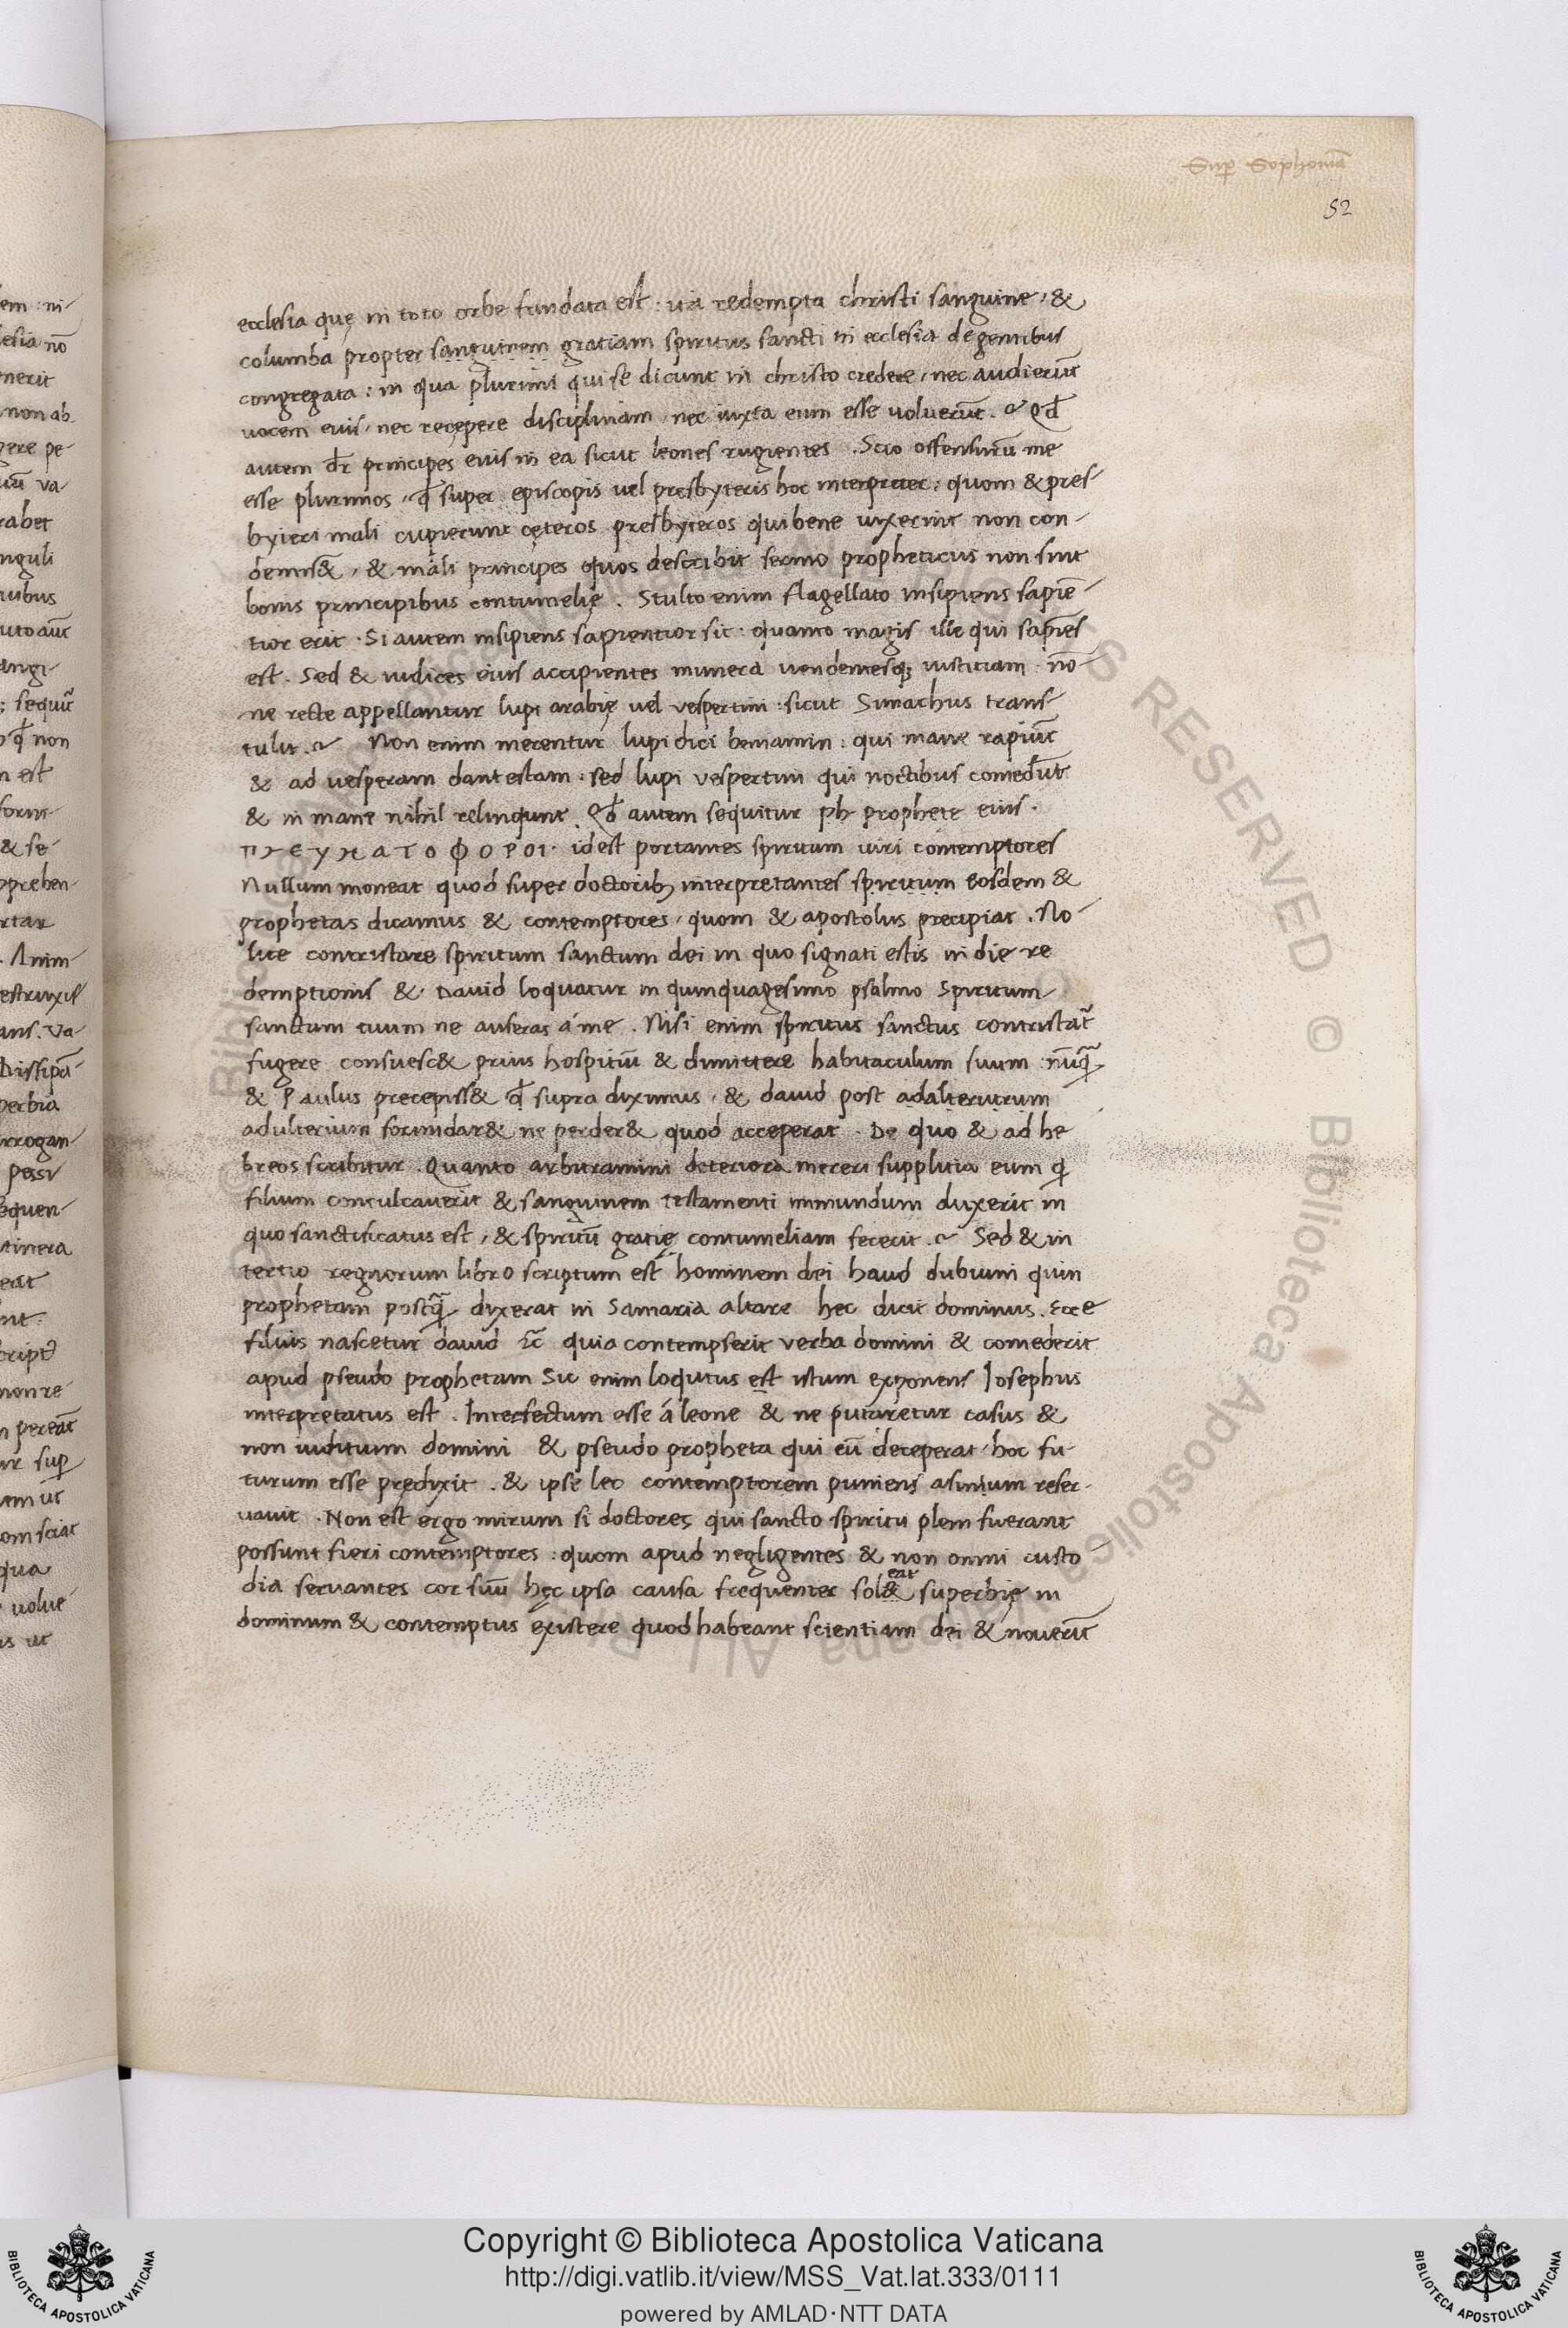 Suꝑ Sophoniā
52
ecclesia quę in toto orbe fundata est : uia redempta christi sanguine , &
columba propter sanguinem gratiam spiritus sancti in ecclesia de gentibus
congregata : in qua plurimi qui se dicunt in christo credere , nec audierūt
uocem eius , nec recępere disciplinam , nec iuxta eum esse uoluerūt . Qđ
autem dr̄ principes eius in ea sicut leones rugientes . Scio offensurū me
esse plurimos , qđ super episcopis uel presbyteris hoc interpreter , quom & pres
byteri mali cupierunt cęteros presbyteros qui bene uixerint non con-
demns& , & mali principes quos describit sermo propheticus non sint
bonis principibus contumelię . Stulto enim flagellato insipiens sapiē-
tior erit . Si autem insipiens sapientior sit : quanto magis ille qui sapiēs
est . Sed & iudices eius accipientes munera uendentesq; iustitiam nō-
ne recte appellantur lupi arabię uel vespertini : sicut Simachus trans
tulit . Non enim merentur lupi dici beniamin : qui mane rapiūt
& ad vesperam dant estam : sed lupi vespertini qui noctibus comedūt
& in mane nihil relinqunt . Qđ autem sequitur ph prophete eius .
πνεγματοφοροι . idest portantes spiritum uiri contemptores
Nullum moneat quod super doctorib; interpretantes spiritum eosdem &
prophetas dicamus & contemptores , quom & apostolus precipiat . No
lite contristare spiritum sanctum dei in quo signati estis in die re
demptionis & David loquatur in quinquagesimo psalmo Spiritum
sanctum tuum ne auferas á me . Nisi enim spiritus sanctus contristat᷑
fugere consuesc& prius hospitiū & dimittere habitaculum suum nūq̄
& Paulus precepiss& qđ supra diximus , & dauid post adaliteriutrum
adulterium formidar& ne perder& quod acceperat . De quo & ad he
breos scribitur . Quanto arbitramini deteriora mereri supplitia eum q̇
filium conculcauerit & sanguinem testamenti immundum duxerit in
quo sanctificatus est , & spiritū gratię contumeliam fecerit . Sed & in
tertio regnorum libro scriptum est hominem dei haud dubium quin
prophetam postq̄ dixerat in Samaria altare hec dicit dominus . Ecce
filius nascetur dauid &c̄ quia contempserit verba domini & comederit
apud pseudo prophetam Sic enim loqutus est istum exponens Iosephus
interpretatus est . Interfectum esse á leone & ne putaretur casus &
non iuditium domini & pseudo propheta qui eū deceperat , hoc fu-
turum esse prędixit . & ipse leo contemptorem puniens asinium reser-
uauit . Non est ergo mirum si doctores qui sancto spiritu pleni fuerant
possunt fieri contemptores : quom apud negligentes & non omni custo
dia servantes cor suū hęc ipsa causa frequenter sol& superbię in
eat
dominum & contemptus existere quod habeant scientiam dei & nouerūt
Copyright © Biblioteca Apostolica Vaticana
http://digi.vatlib.it/view/MSS_Vat.lat.333/0111
powered by AMLAD·NTT DATA
BIBLIOTECA APOSTOLICA VATICANA
BIBLIOTECA APOSTOLICA VATICANA